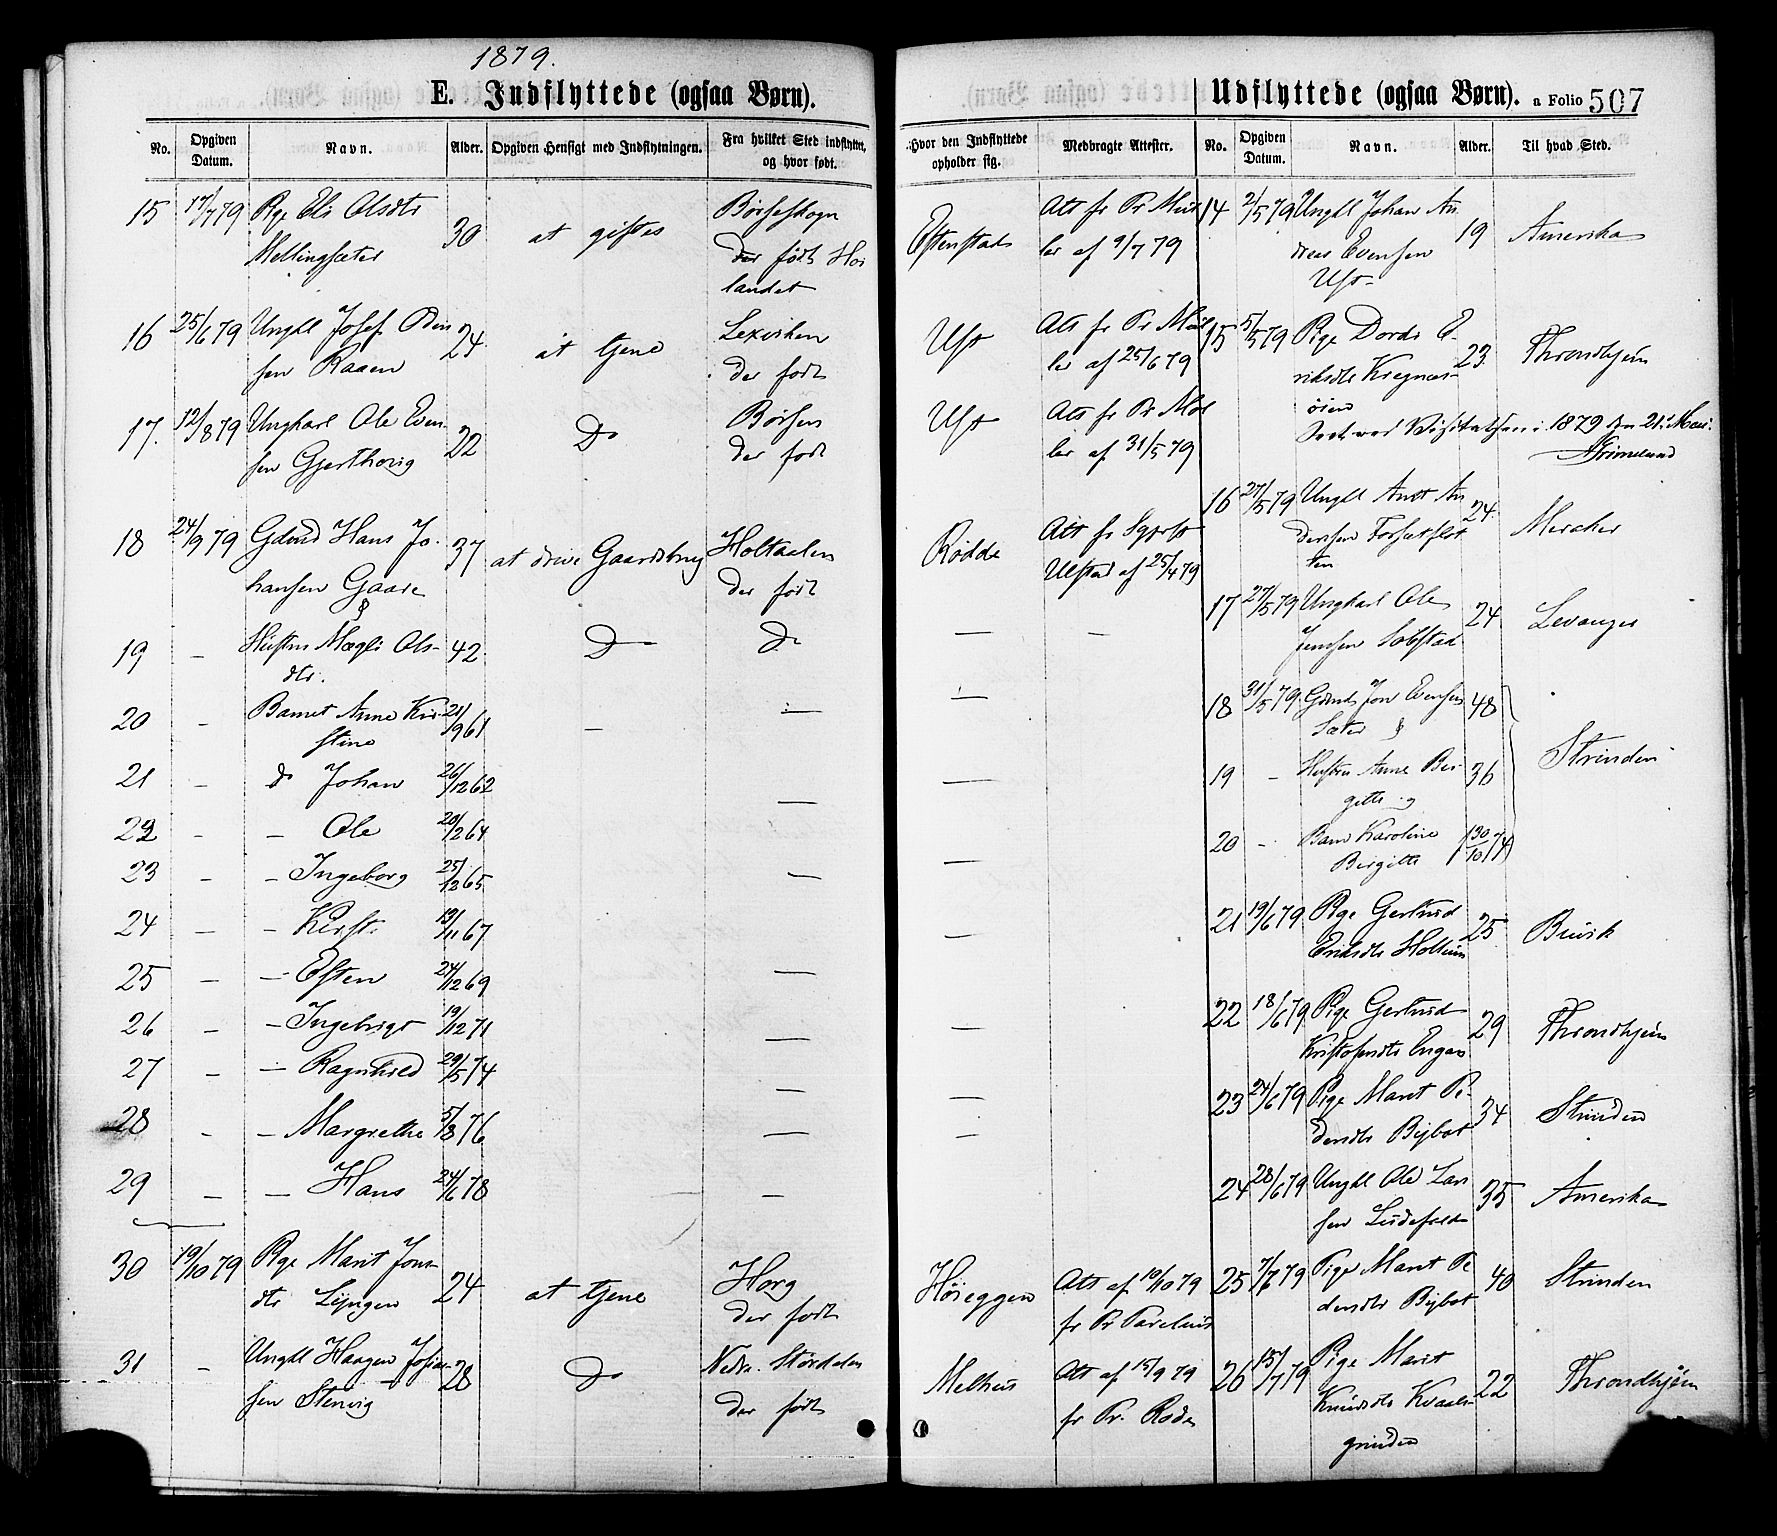 1879.
E. Indflyttede (ogsaa Børn).
No. Opgiven Datum. Navn. Alder. Opgiven Hensigt med Indflytningen. Fra hvilket Sted indflyttet, og hvor født. Hvor den Indflyttede opholder sig. Medbragte Attester.
15 17/7 79 Pige Els Olsdtr 30 at giftes Børseskogn Estenstad Att fr Pr Møl
Mellingsæter der født Høi ler af 9/7 79
landet
16 25/6 79 Ungkl Josef Odin 24 at tjene Lexviken Ust Att fr Pr Møl
sen Raaen der født ler af 25/6 79
17. 12/8 79 Ungkarl Ole Even 22 Do Børsen Ust Att fr Pr Møl
sen der født ler af 31/5 79
18 24/9 79 Gdmd Hans Jo- 37 at drive Gaardsbrug Holtaalen Rødde Att fr
hansen Gaare der født Ulstad af 25/4 79
&
19 - Hustru Magli Ols- 42 Do Do — —
dtr.
20 - Barnet Anne Kir- 21/9 61 — — —
stine
21 - do Johan 26/12 62 — —
22 - — Ole 20/2 64
23 - — Ingeborg 25/12 65 — —
24 - — Kirst. 19/11 67 —
25 - — Esten 24/12 69 —
26 - — Ingebrigt 19/12 71 — —
27 - — Ragnhild 29/5 74 — —
28 - — Margrethe 5/8 76 — —
29 - — Hans 24/6 78 —
30 19/10 79 Pige Marit Jons 24 at tjene Horg Høieggen Att af 10/10 79
dtr Lyngen der født fr Pr Parelius
31 - Ungkl Haagen Johan- 28 Do Nedr. Størdalen Melhus Att af 15/9 79
sen Stenvig der født fr Pr. Rode
Udflyttede (ogsaa Børn). a Folio 507
No. Opgiven Datum. Navn. Alder. Til hvad Sted.
14 2/5 79 Ungkl Johan An 19 Amerika
dreas Evensen
Ust
15 5/5 79 Pige Dordi E- 23 Throndhjem
riksdtr Kregnes-
øien
Seet ved Visitatsen i 1879 den 21de Mai.
Grimelund
16 27/5 79 Ungkl Arnt An 24 Meraker
dersen Forsetflot
ten
17 27/5 79 Ungkarl Ole 24 Levanger
Jensen Solstad
18 31/5 79 Gdmd Jon Evensen 48 Strinden
Sæter &
19 - Hustru Anne Bir- 36
gitte og
20 - Barn Karoline (30/10 74)
Birgitte
21 19/6 79 Pige Gertrud 25 Buvik
Eriksdtr Holtum
22 18/6 79 Pige Gertrud 29 Throndhjem
Kristofersdtr Engan
23 24/6 79 Pige Marit Pe- 34 Strinden
dersdtr
24 28/6 79 Ungkl Ole Lar 35 Amerika
sen
25 7/6 79 Pige Marit Pe 40 Strinden
dersdtr
26 15/7 79 Pige Marit 22 Throndhjem
Knudsdtr Kvaals-
grinden